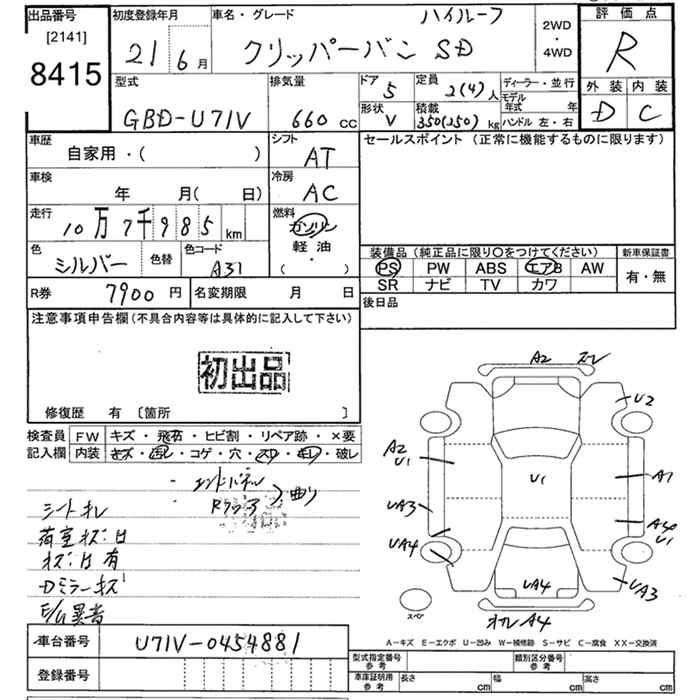 出品番号
[2141]
8415
初度登録年月
21 6月
車名・グレード
ハイルーフ
クリッパーバン SD
2WD
・
4WD
評価点
R
外装 内装
D C
型式
GBD-U71V
排気量
660 cc
ドア
5
形状
V
定員
2(4)人
積載
350(250)kg
ディーラー・並行
モデル年式 年
ハンドル 左・右
車歴
自家用・( )
シフト
AT
セールスポイント (正常に機能するものに限ります)
車検
年 月( 日)
冷房
AC
走行
10万7千985km
燃料
ガソリン
軽油
・
( )
色
シルバー
色替
色コード
A31
装備品 (純正品に限り〇をつけてください)
新車保証書
PS PW ABS エアB AW
有・無
SR ナビ TV カワ
R券
7900円
名変期限 月 日
後日品
注意事項申告欄 (不具合内容等は具体的に記入して下さい)
初出品
修復歴 有 〔箇所 〕
検査員
記入欄
FW キズ・飛石・ヒビ割・リペア跡・×要
内装 キズ・汚レ・コゲ・穴・スレ・キレ・破レ
エンドパネル
Rフロア
曲り
荷室キズ凹
キズ凹有
Dミラーキズ
E/G異音
A2
U2
A2
U1
U1
A1
UA3
A4
U1
UA4
UA4
UA3
スペア
A4
A-キズ E-エクボ U-凹み W-補修跡 S-サビ C-腐食 XX-交換済
車台番号
U71V-0454881
登録番号
型式指定番号
参考
類別区分番号
参考
車庫証明
参考
長さ cm
幅 cm
高さ cm